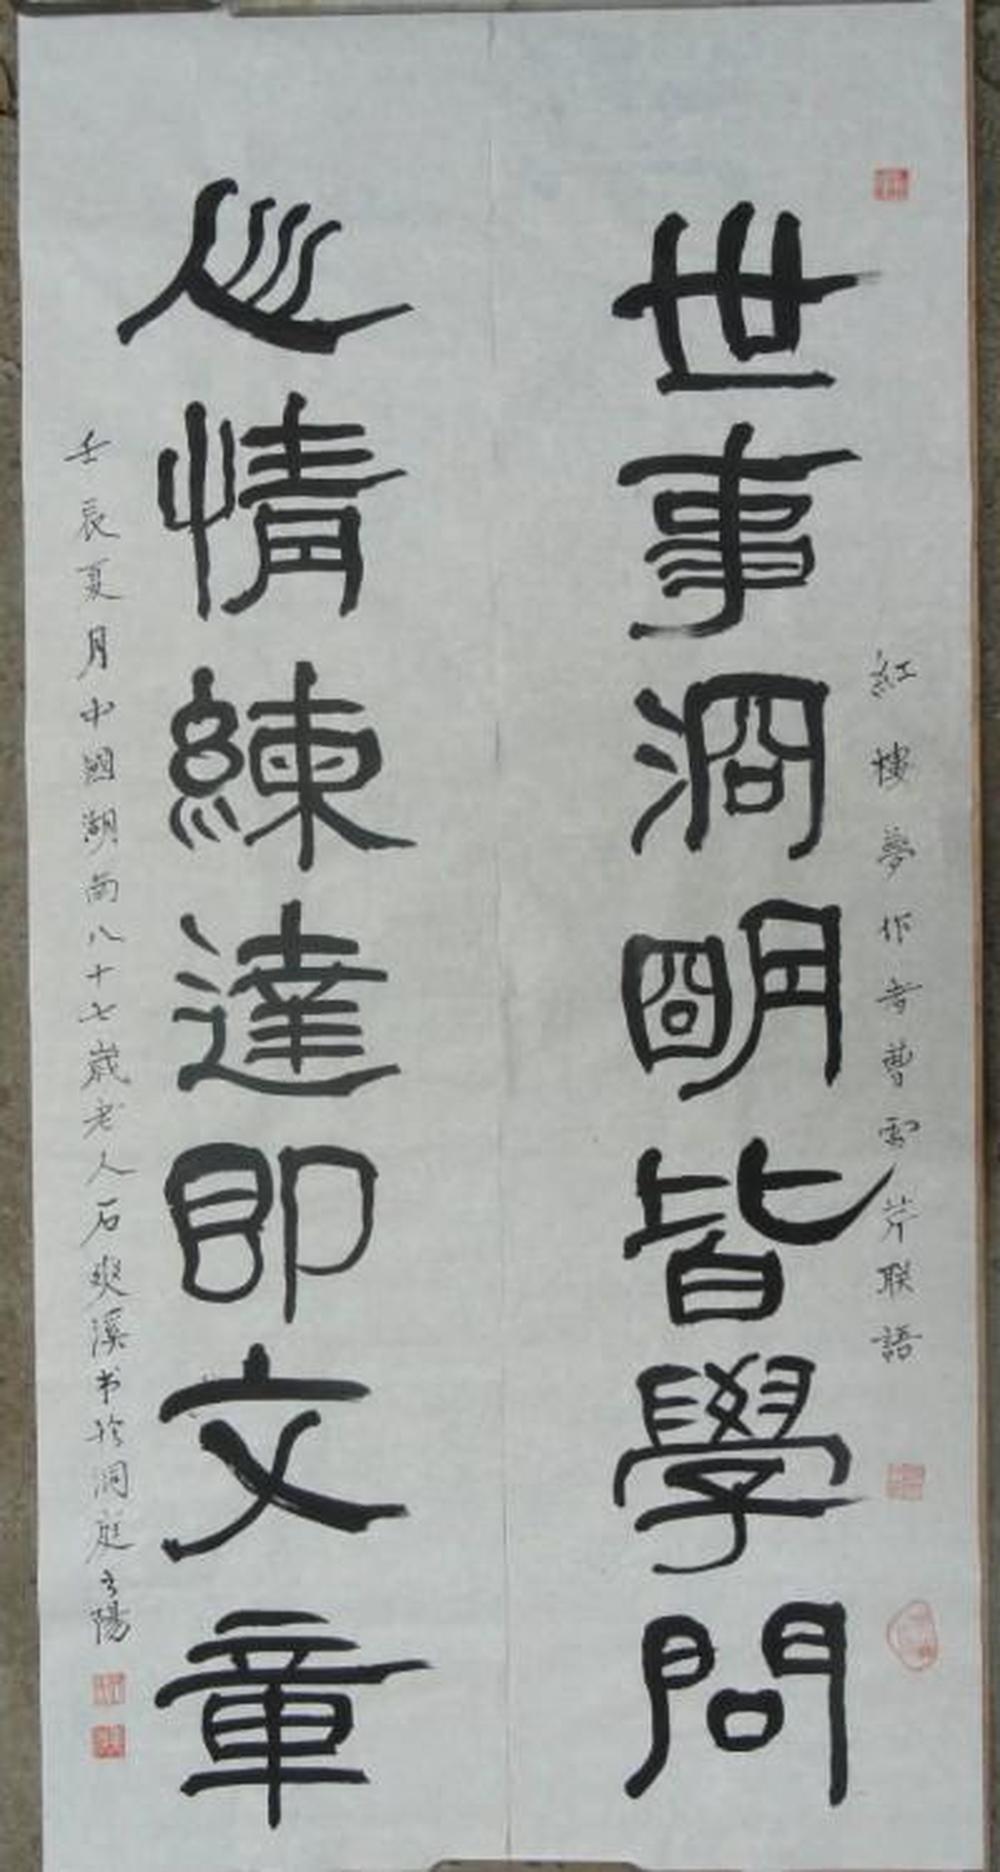 世事洞明皆學問
紅樓夢作者曹雪芹联語
心情練達即文章
壬辰夏月中國湖南八十七歲老人石爽溪书於洞庭之陽